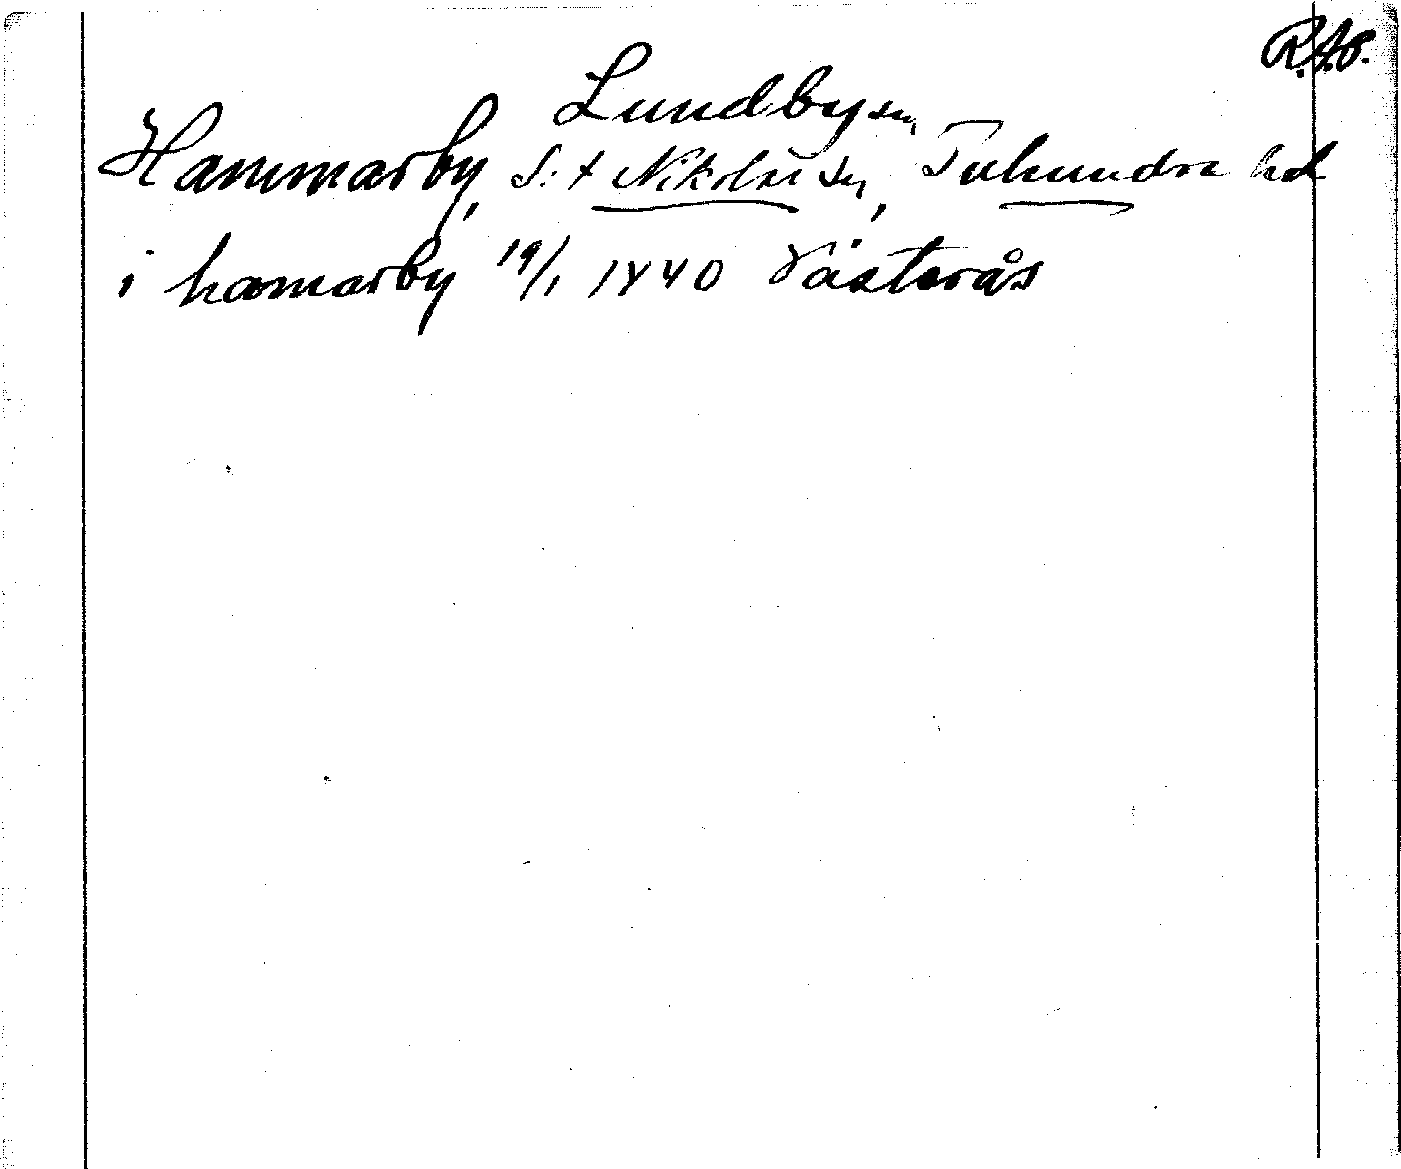 R.A.P.
Lundby sn,
Hammarby, S:t Nikolai sn, Tuhundra hd
i hamarby 19/1 1440 Västerås